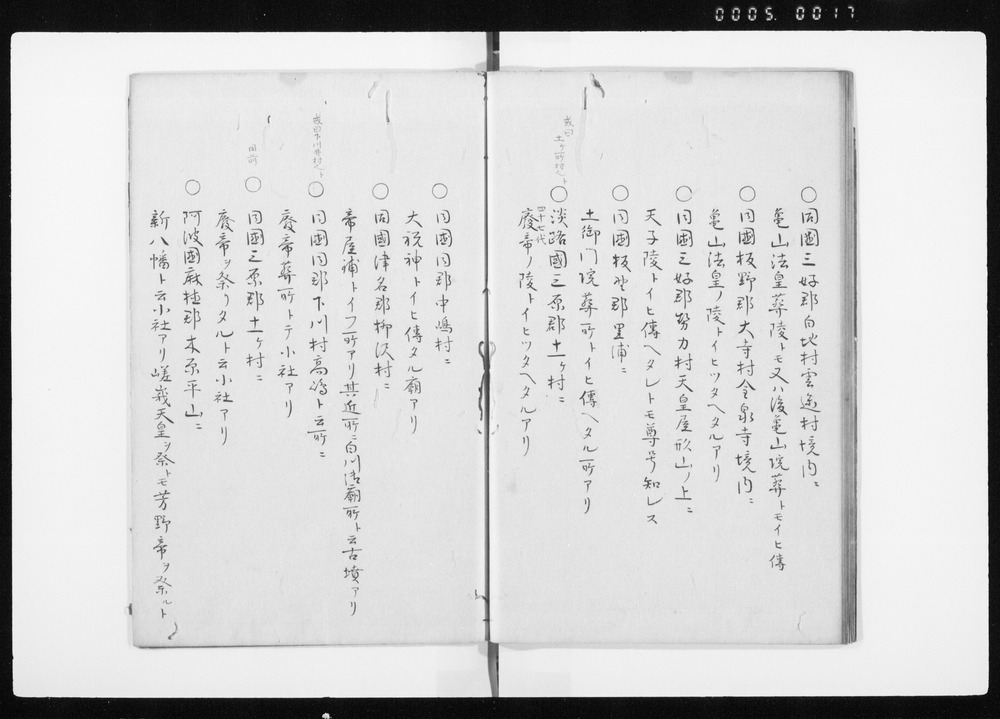 0005.0017
○同國三好郡白地村雲邊村境内ニ
亀山法皇葬陵トモ又ハ後亀山院葬トモイヒ傳
○同國板野郡大寺村金泉寺境内ニ
亀山法皇ノ陵トイヒツタヘタルアリ
○同國三好郡勢力村天皇屋形山ノ上ニ
天子陵トイヒ傳ヘタレトモ尊号知レス
○同國板野郡里浦ニ
土御门院葬所トイヒ傳ヘタル所アリ
或曰土ケ所村ヘト
○淡路國三原郡十一ケ村ニ
四十七代
廢帝ノ陵トイヒツタヘタルアリ
○同國同郡中嶋村ニ
大祝神トイヒ傳タル廟アリ
○同國津名郡柳沢村ニ
帝屋鋪トイフ所アリ其近所ニ白川法廟所ト云古墳アリ
或曰下川井村ヘト
○同國同郡下川村高嶋ト云所ニ
廢帝葬所トテ小社アリ
同前
○同國三原郡十一ケ村ニ
廢帝ヲ祭リタルト云小社アリ
○阿波國麻植郡木原平山ニ
新八幡ト云小社アリ嵯峨天皇ヲ祭トモ芳野帝ヲ祭ルト